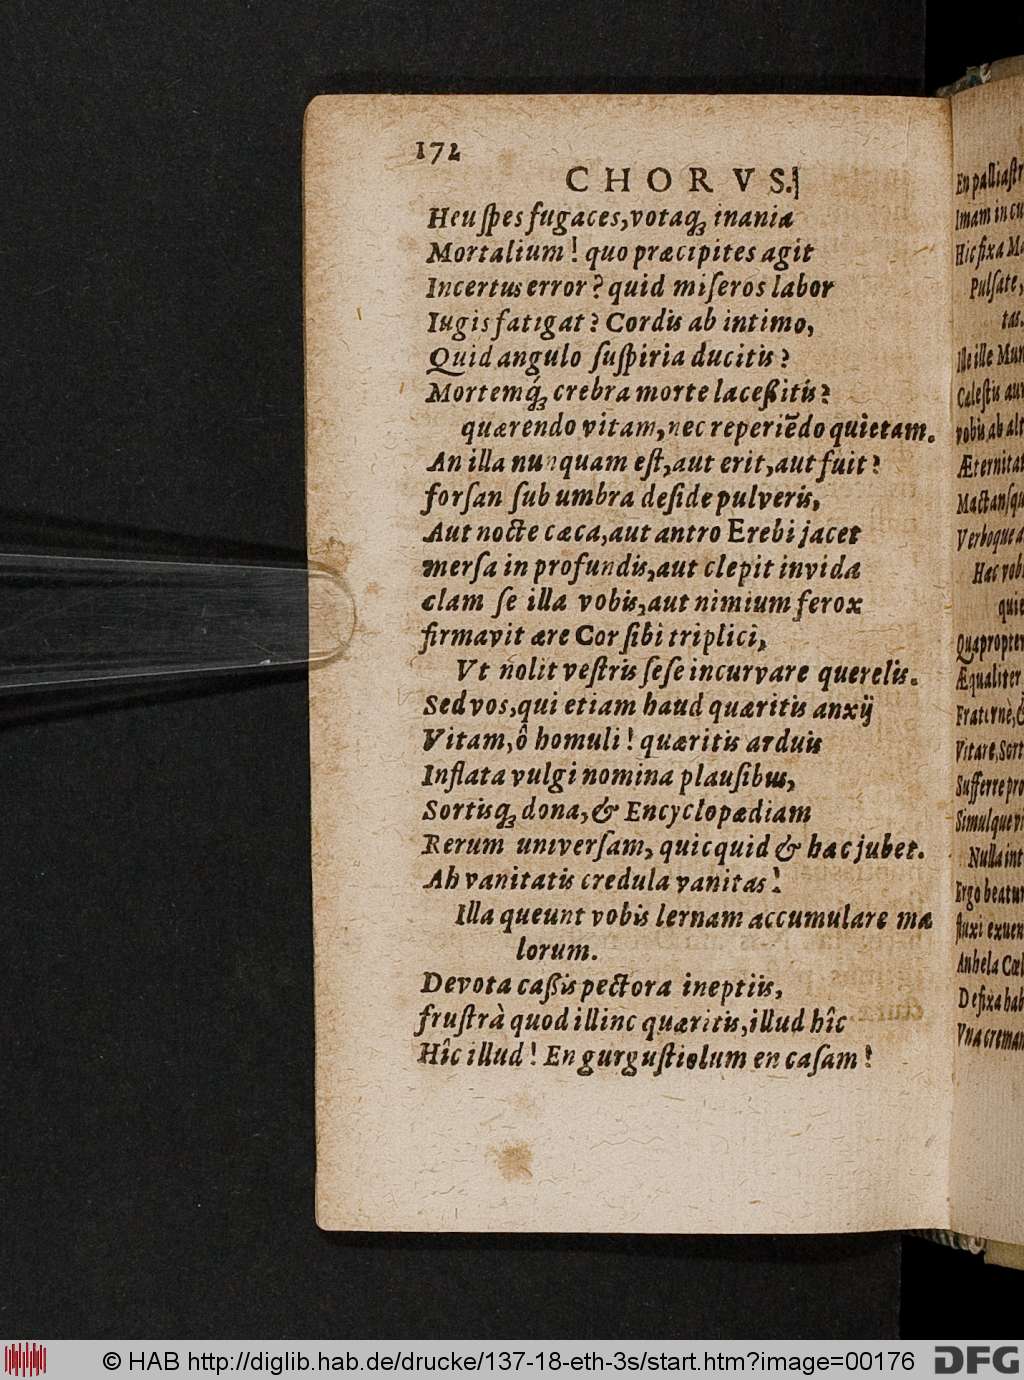 172
CHORVS.
Heu ſpes fugaces, votaq́ꝫ inania
Mortalium! quo præcipites agit
Incertus error? quid miſeros labor
Iugis fatigat? Cordis ab intimo,
Quid angulo ſuſpiria ducitis?
Mortemq́ꝫ crebra morte laceßitis?
quærendo vitam, nec reperiēdo quietam.
An illa nunquam eſt, aut erit, aut fuit?
forſan ſub umbra deſide pulveris,
Aut nocte cæca, aut antro Erebi jacet
merſa in profundis, aut clepit invida
clam ſe illa vobis, aut nimium ferox
firmavit ære Cor ſibi triplici,
Vt nolit veſtris ſeſe incurvare querelis.
Sed vos, qui etiam haud quæritis anxij
Vitam, ô homuli! quæritis arduis
Inflata vulgi nomina plauſibus,
Sortisqꝫ dona, & Encyclopædiam
Rerum univerſam, quicquid & hac jubet.
Ah vanitatis credula vanitas!
Illa queunt vobis lernam accumulare ma
lorum.
Devota caßis pectora ineptiis,
fruſtrà quod illinc quæritis, illud hîc
Hîc illud! En gurguſtiolum en caſam!
En palliaſtr
Imam in cu
Hic fixa M
Pulſate,
tas.
Ille ille Mun
Cæleſtis aur
vobis, ab alt
Æternitat
Mactanſqu
Verboque a
Hac vobi
quie
Quapropter
Æqualiter
Fraternè, &
Vitare, Sort
Sufferre pro
Simulque vi
Nulla int
Ergo beatur
fluxi exuen
Anhela Cœl
Defixa hab
Vna creman
© HAB http://diglib.hab.de/drucke/137-18-eth-3s/start.htm?image=00176
DFG